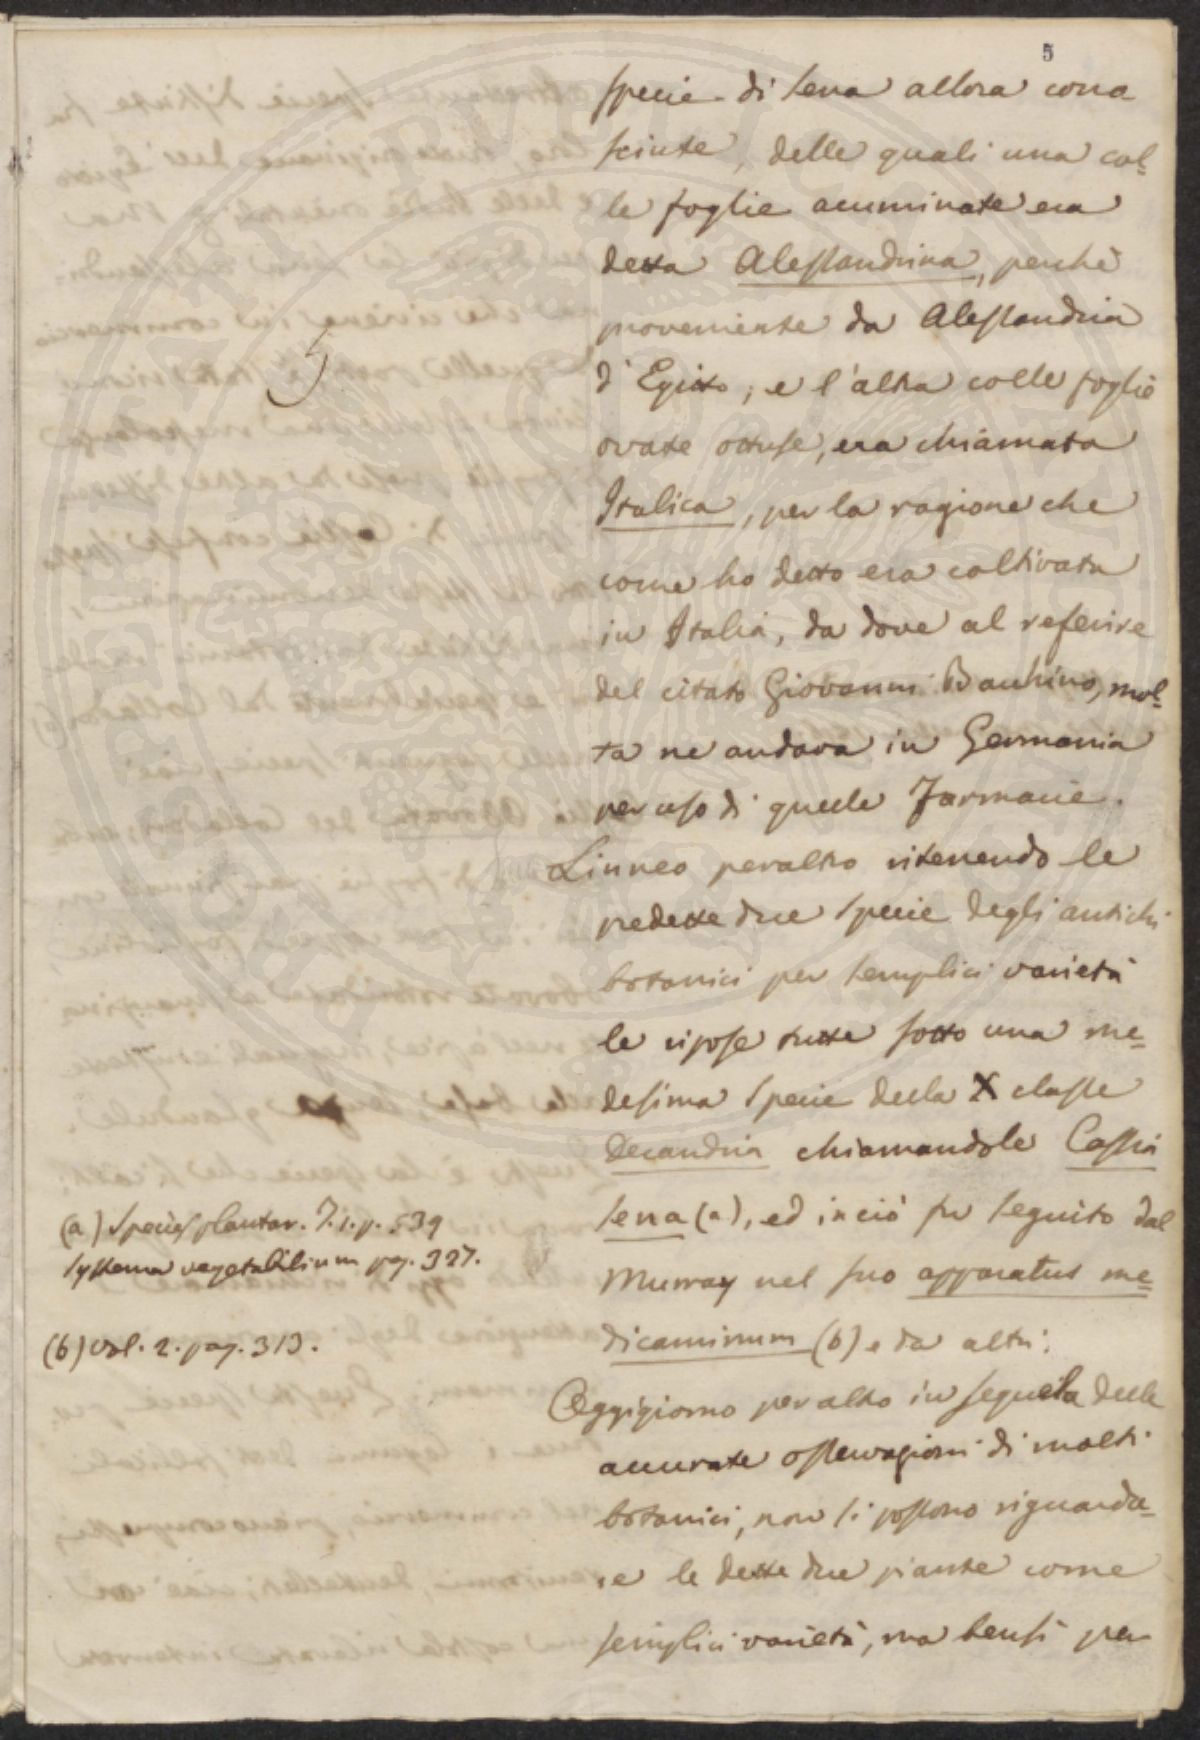 5
specie di sena allora cono
sciute, delle quali una col=
le foglie acuminate era
detta Alessandrina, perchè
proveniente da Alessandria
d'Egitto; e l'altra colle foglie
ovate ottuse, era chiamata
Italica, per la ragione che
come ho detto era coltivata
in Italia, da dove al referire
del citato Giovanni Bauhino, mol=
ta ne andava in Germania
per uso di quelle Farmacie.
Linneo peraltro ritenendo le
predette due specie degli antichi
botanici per semplici varietà
le ripose tutte sotto una me=
desima specie della X classe
Decandria chiamandole Cassia
sena (a), ed in ciò fu seguito dal
Murray nel suo apparatus me=
dicaminum (b) e da altri.
Oggigiorno peraltro in sequela delle
accurate osservazioni di molti
botanici, non si possono riguarda=
re le dette due piante come
semplici varietà, ma bensì per
5
(a) Species plantar. T. 1. p. 539
systema vegetabilium pag. 327.
(b) vol. 2. pag. 313.